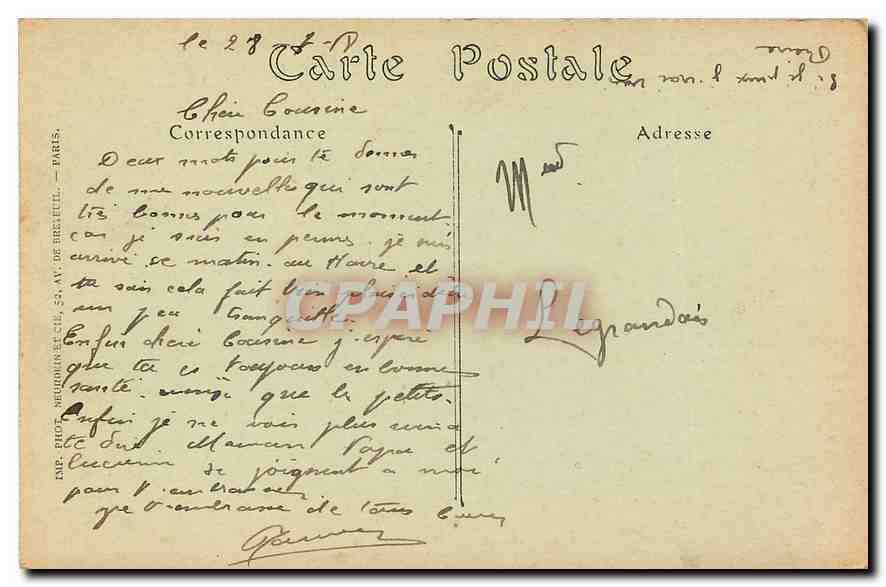 le 28
Carte Postale
Chère Cousine
Correspondance
Adresse
Deux mots pour te donner
de me nouvelles qui sont
très bonnes pour le moment
car je suis en perme. je suis
arrivé se matin. au Havre et
tu sais cela fait bien plaisir
un peu tranquille
Enfin chère Cousine j'espère
que tu es toujours en bonne
santé. ainsi que les petits.
Enfin je ne vois plus rien a
te dire Maman Papa et
Lucienne se joignent a moi
pour t'embrasser
je t'embrasse de tous
Legrandais
IMP. PHOT. NEURDEIN ET CIE, 52, AV. DE BRETEUIL. — PARIS.
CPAPHIL